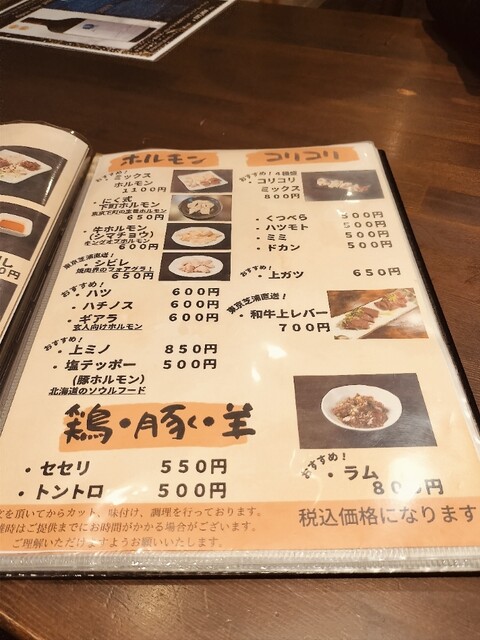 ホルモン
おすすめ!
・ミックス
ホルモン
1100円
・にく式
下町ホルモン
東京下町の定番ホルモン
650円
・牛ホルモン
(シマチョウ)
キングオブホルモン
600円
東京芝浦直送!
・シビレ
焼肉界のフォアグラ!
650円
おすすめ!
・ハツ 600円
・ハチノス 600円
・ギアラ 600円
玄人向けホルモン
おすすめ!
・上ミノ 850円
・塩テッポー 500円
(豚ホルモン)
北海道のソウルフード
コリコリ
おすすめ!4種盛
・コリコリ
ミックス
800円
・くつべら 500円
・ハツモト 500円
・ミミ 500円
・ドカン 500円
おすすめ!
・上ガツ 650円
東京芝浦直送!
・和牛上レバー
700円
鶏・豚・羊
・セセリ 550円
・トントロ 500円
おすすめ!
・ラム
800円
を頂いてからカット、味付け、調理を行っております。
時はご提供までにお時間がかかる場合がございます。
ご理解いただけますようお願いいたします。
税込価格になります